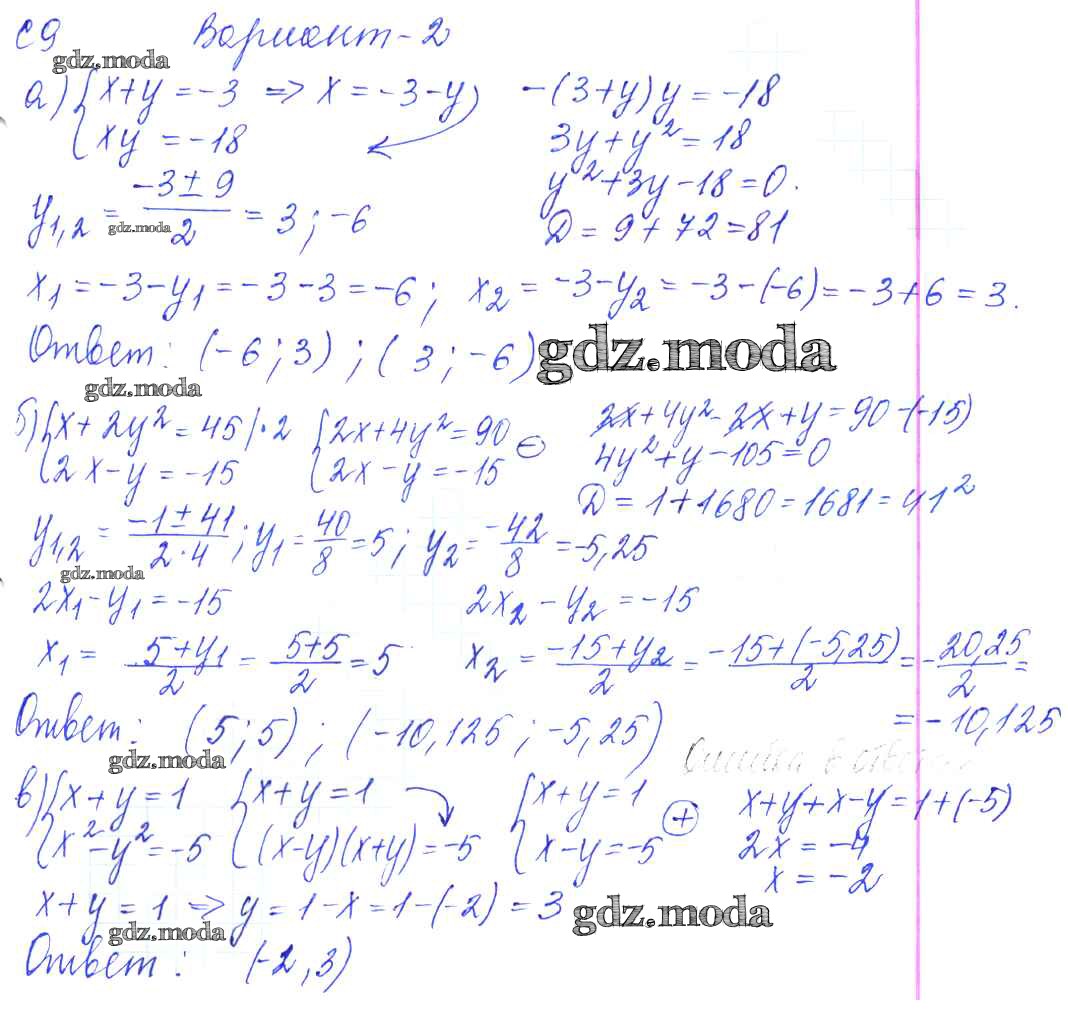 С9 Вариант-2
gdz.moda
а) {x+y=-3 => x=-3-y) -(3+y)y=-18
{xy=-18 3y+y²=18
y²+3y-18=0.
y₁,₂ = (-3±9)/2 = 3; -6 D=9+72=81
gdz.moda
x₁=-3-y₁=-3-3=-6; x₂=-3-y₂=-3-(-6)=-3+6=3.
Ответ: (-6;3); (3;-6)
gdz.moda
gdz.moda
б) {x+2y²=45|·2 {2x+4y²=90 ⊖ 2x+4y²-2x+y=90-(-15)
{2x-y=-15 {2x-y=-15 4y²+y-105=0
D=1+1680=1681=41²
y₁,₂ = (-1±41)/(2·4); y₁=40/8=5; y₂=-42/8=-5,25
gdz.moda
2x₁-y₁=-15 2x₂-y₂=-15
x₁= (5+y₁)/2 = (5+5)/2 =5 x₂= (-15+y₂)/2 = (-15+(-5,25))/2 = -20,25/2 =
= -10,125
Ответ: (5;5); (-10,125; -5,25)
gdz.moda
Ошибка в ответе
в) {x+y=1 {x+y=1 {x+y=1 ⊕ x+y+x-y=1+(-5)
{x²-y²=-5 {(x-y)(x+y)=-5 {x-y=-5 2x=-4
x=-2
x+y=1 => y=1-x=1-(-2)=3
gdz.moda
gdz.moda
Ответ: (-2,3)